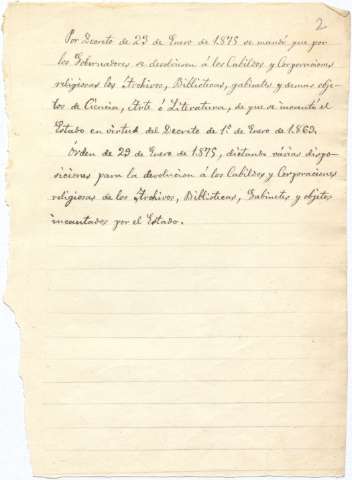 2
Por Decreto de 23 de Enero de 1875 se mandó que por
los Gobernadores se devolviesen á los Cabildos y Corporaciones
religiosas los Archivos, Bibliotecas, gabinetes y demas obje-
tos de Ciencia, Arte ó Literatura, de que se incautó el
Estado en virtud del Decreto de 1º de Enero de 1869.
Órden de 29 de Enero de 1875, dictando várias dispo-
siciones para la devolucion á los Cabildos y Corporaciones
religiosas de los Archivos, Bibliotecas, Gabinetes y objetos
incautados por el Estado.